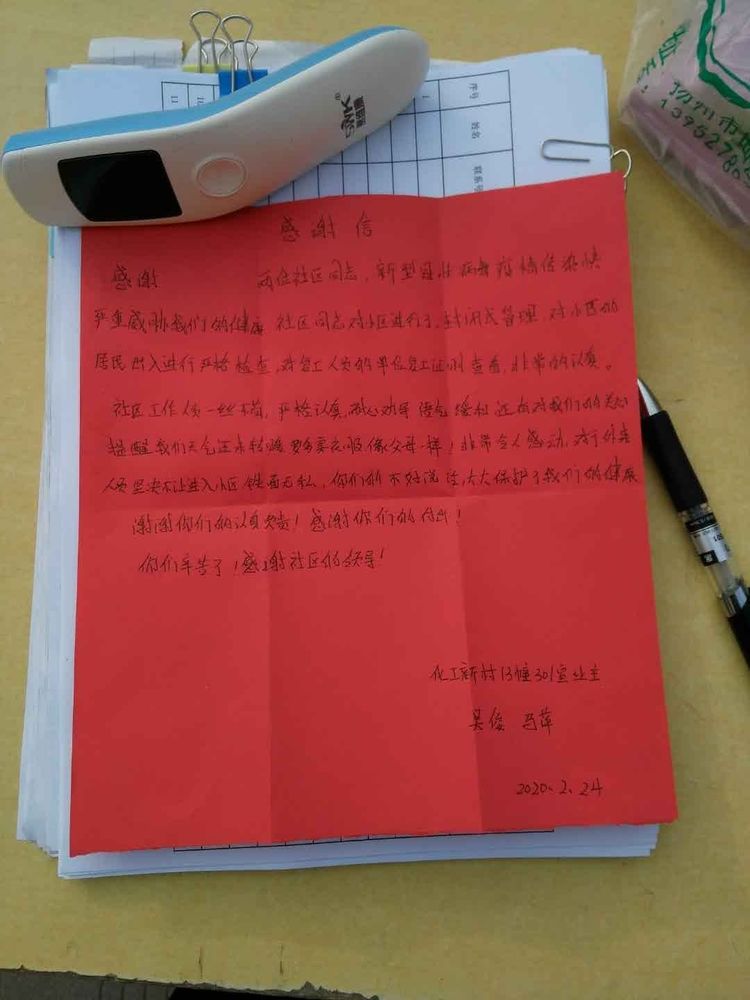 序号
姓名
联系
SMK®
扬州市
1395278
感谢信
感谢 两位社区同志，新型冠状病毒疫情传染快
严重威胁我们的健康 社区同志对小区进行了，封闭式管理 对小区的
居民出入进行严格检查，对复工人员的单位复工证明查看，非常的认真。
社区工作人员一丝不苟，严格认真，耐心劝导 语气缓和 还有对我们的关心
提醒我们天气还未转暖要多穿衣服，像父母一样！非常令人感动，对于外来
人员坚决不让进入小区 铁面无私，你们的不好说话，大大保护了我们的健康
谢谢你们的认真负责！感谢你们的付出！
你们辛苦了！感谢社区的领导！
化工新村13幢301室业主
吴俊 马萍
2020.2.24